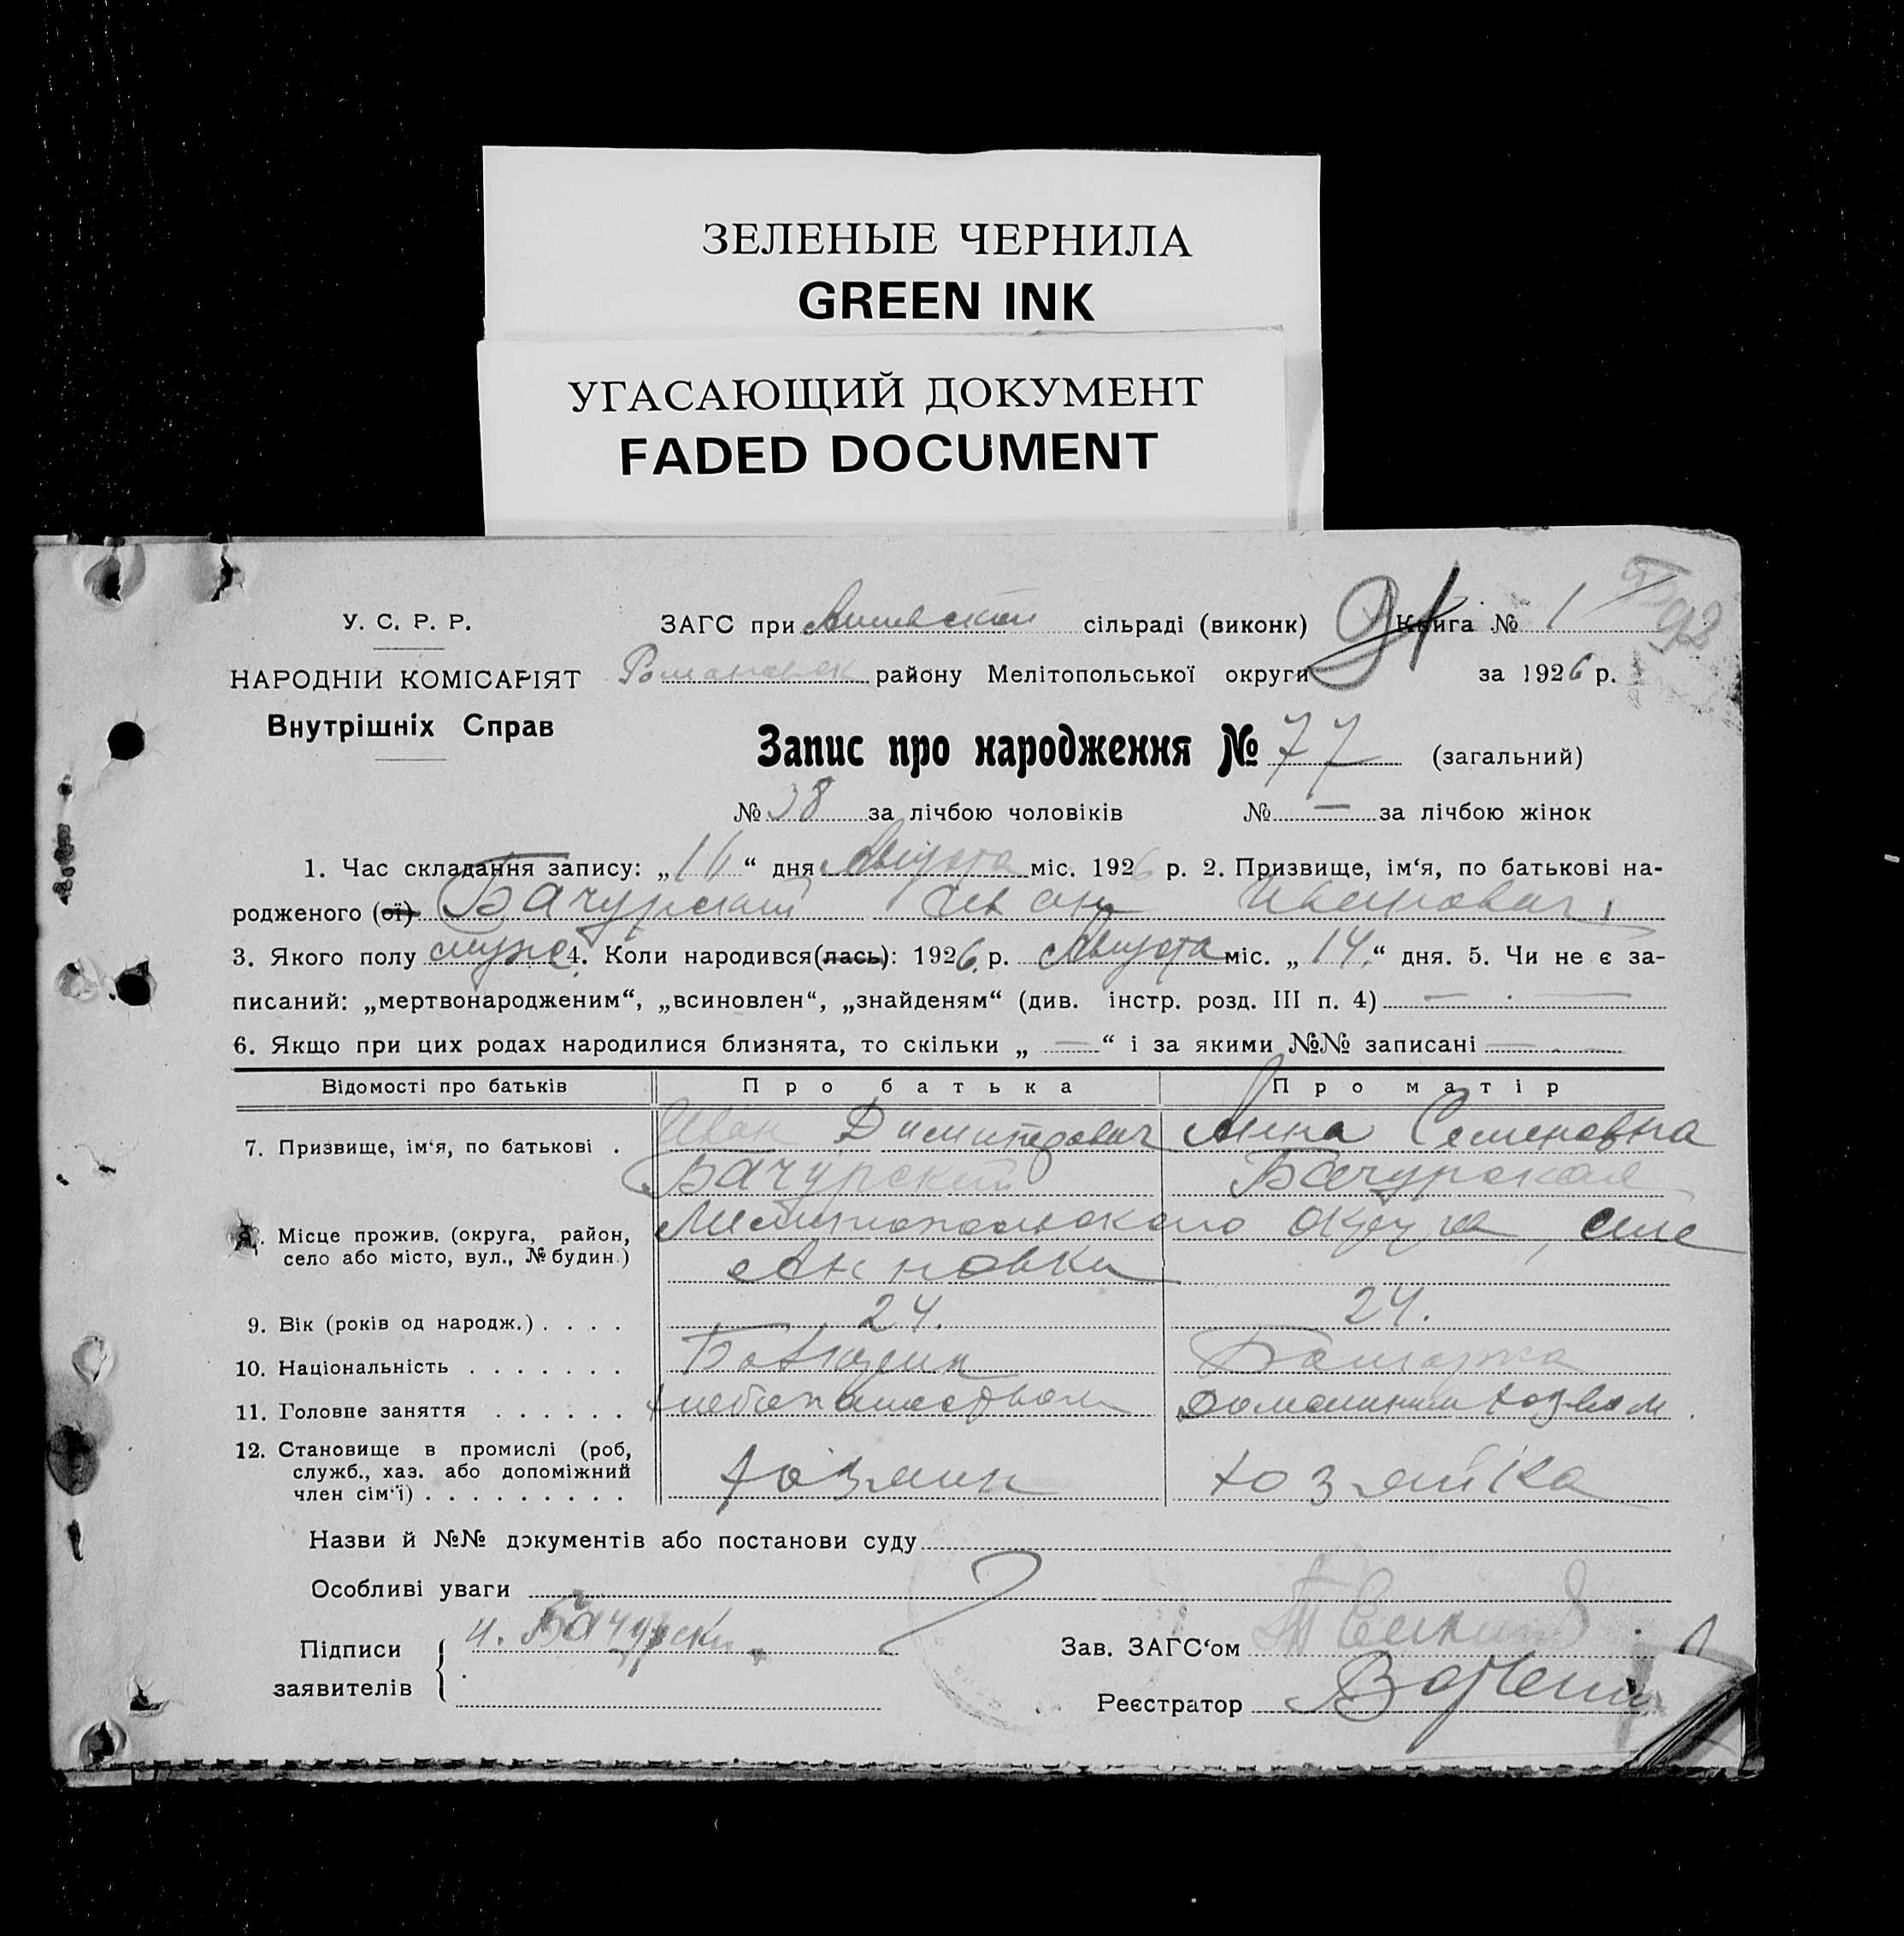 ЗЕЛЕНЫЕ ЧЕРНИЛА
GREEN INK
УГАСАЮЩИЙ ДОКУМЕНТ
FADED DOCUMENT
У. С. Р. Р.
НАРОДНІЙ КОМІСАРІЯТ
Внутрішніх Справ
ЗАГС при сільраді (виконк) Книга № 1
Романовск району Мелітопольської округи за 1926 р.
Запис про народження № 77 (загальний)
№ 38 за лічбою чоловіків № — за лічбою жінок
1. Час складання запису: „16“ дня Августа міс. 1926 р. 2. Призвище, ім‘я, по батькові на-
родженого (ої) Бачурский Иван Иванович
3. Якого полу муж 4. Коли народився(лась): 1926 р. Августа міс. „14“ дня. 5. Чи не є за-
писаний: „мертвонародженим“, „всиновлен“, „знайденям“ (див. інстр. розд. III п. 4) —
6. Якщо при цих родах народилися близнята, то скільки „ — “ і за якими №№ записані —
Відомості про батьків Про батька Про матір
7. Призвище, ім‘я, по батькові . Иван Димитрович Анна Семеновна
Бачурский Бачурская
8. Місце прожив. (округа, район, село або місто, вул., № будин.) Мелитопольского округа, село
Анновки
9. Вік (років од народж.) . . . . 24. 24.
10. Національність . . . . . . . Болгарка
11. Головне заняття . . . . . . хлебопашеством домашним хозвом.
12. Становище в промислі (роб,
служб., хаз. або допоміжний
член сім‘ї) . . . . . . . . . хозяин хозяйка
Назви й №№ документів або постанови суду
Особливі уваги
Підписи и. Бачурски
заявителів
Зав. ЗАГС‘ом
Реєстратор